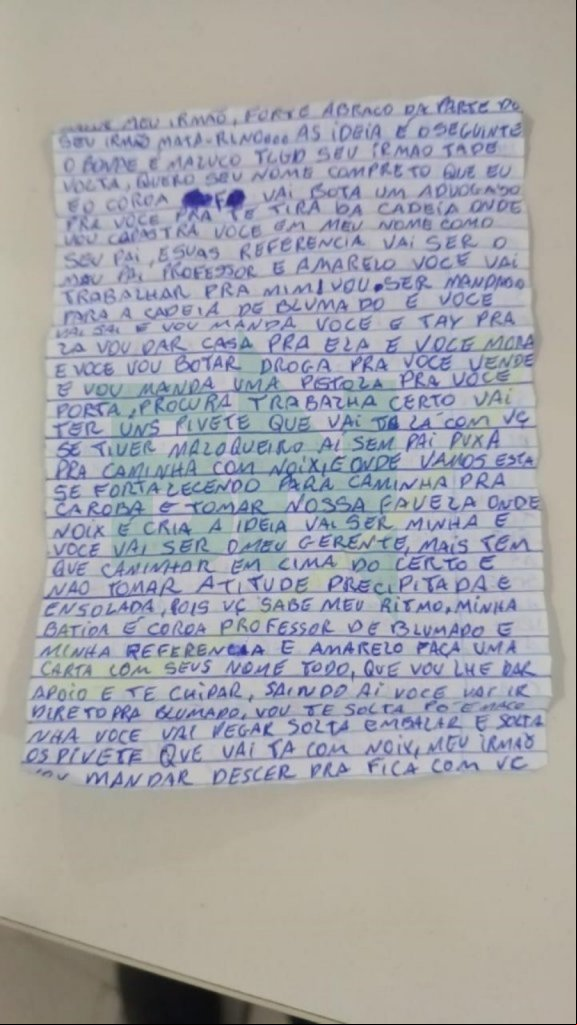 MEU IRMÃO, FORTE ABRAÇO DA PARTE DO
SEU IRMÃO MATA-RINO... AS IDEIA E O SEGUINTE
O BONDE E MALUCO TLGD SEU IRMAO TADE
VOLTA, QUERO SEU NOME COMPRETO QUE EU
E O COROA F VAI BOTA UM ADVOGADO
PRA VOCE PRA TE TIRA DA CADEIA ONDE
VOU CAPASTRA VOCE EM MEU NOME COMO
SEU PAI, ESUAS REFERENCIA VAI SER O
MEU PAI PROFESSOR E AMARELO VOCE VAI
TRABALHAR PRA MIM, VOU SER MANDADO
PARA A CADEIA DE BLUMADO E VOCE
VAI SAI E VOU MANDA VOCE E TAY PRA
LA VOU DAR CASA PRA ELA E VOCE MORA
E VOCE VOU BOTAR DROGA PRA VOCE VENDE
E VOU MANDA UMA PISTOLA PRA VOCE
PORTA, PROCURA TRABALHA CERTO VAI
TER UNS PIVETE QUE VAI TA LÁ COM VC
SE TIVER MALOQUEIRO AI SEM PAI PUXA
PRA CAMINHA COM NOIX, E ONDE VAMOS ESTA
SE FORTALECENDO PARA CAMINHA PRA
CAROBA E TOMAR NOSSA FAVELA ONDE
NOIX E CRIA A IDEIA VAI SER MINHA E
VOCE VAI SER O MEU GERENTE, MAIS TEM
QUE CAMINHAR EM CIMA DO CERTO E
NAO TOMAR ATITUDE PRECIPITADA E
ENSOLADA, POIS VÇ SABE MEU RITMO, MINHA
BATIDA É COROA PROFESSOR DE BLUMADO E
MINHA REFERENCIA E AMARELO FAÇA UMA
CARTA COM SEUS NOME TODO, QUE VOU LHE DAR
APOIO E TE CUIDAR, SAINDO AI VOCE VAI IR
DIRETO PRA BLUMADO, VOU TE SOLTA PÓ E MACO
NHA VOCE VAI PEGAR SOLTA EMBALAR E SOLTA
OS PIVETE QUE VAI TA COM NOIX, MEU IRMAO
VOU MANDAR DESCER PRA FICA COM VC